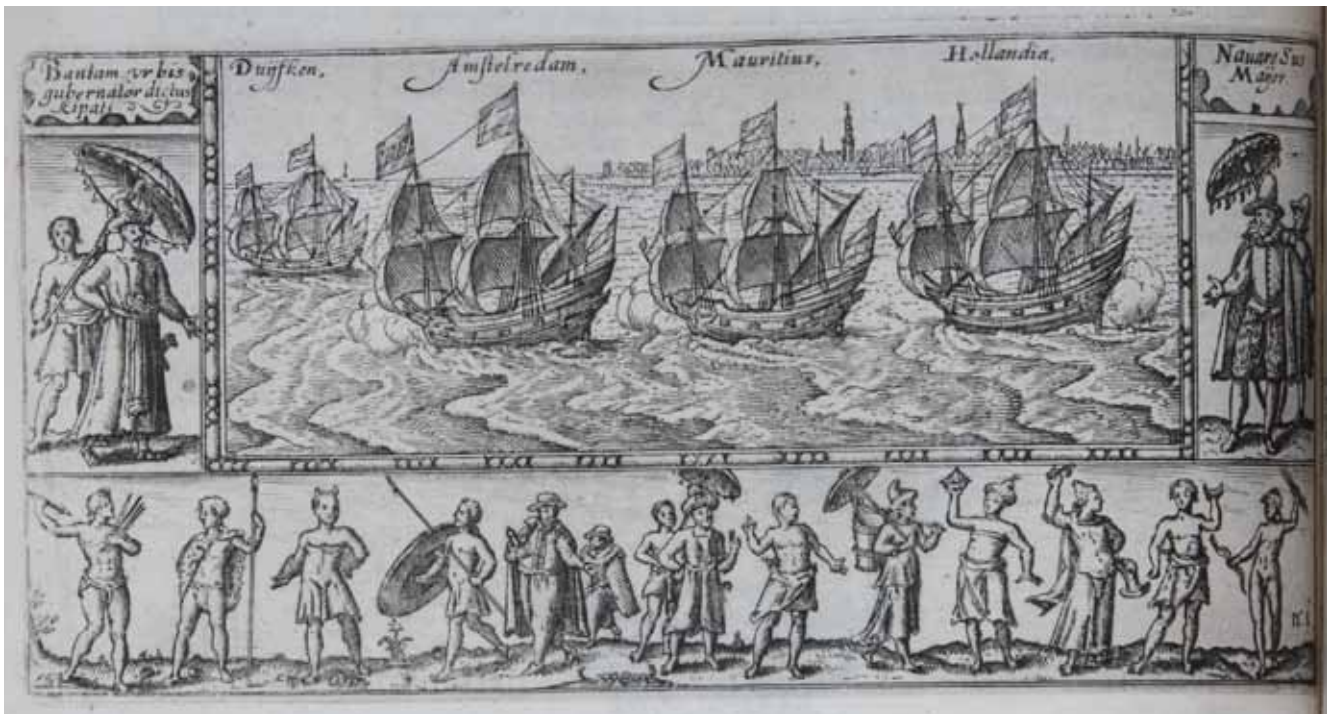 Bantam vrbis
gubernator dictus
Kipati
Duyfken,
Amstelredam,
Mauritius,
Hollandia,
Navarc
Maior
n. 1